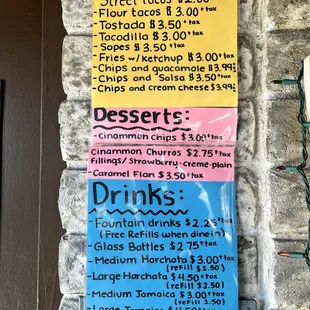 Street tacos $2.00+tax
-Flour tacos $3.00+tax
-Tostada $3.50+tax
-Tacodilla $3.00+tax
-Sopes $3.50+tax
-Fries w/ketchup $3.00+tax
-Chips and guacamole $3.99
-Chips and Salsa $3.50+tax
-Chips and cream cheese $3.99
Desserts:
-Cinammon chips $3.00+tax
Cinammon Churros $2.75+tax
Fillings/Strawberry-creme-plain
-Caramel Flan $3.50+tax
Drinks:
-Fountain drinks $2.25+tax
(Free Refills when dine in)
-Glass Bottles $2.75+tax
-Medium Horchata $3.00+tax
(refill $1.50)
-Large Horchata $4.50+tax
(refill $2.50)
-Medium Jamaica $3.00+tax
(refill 1.50
-Large Jamaica